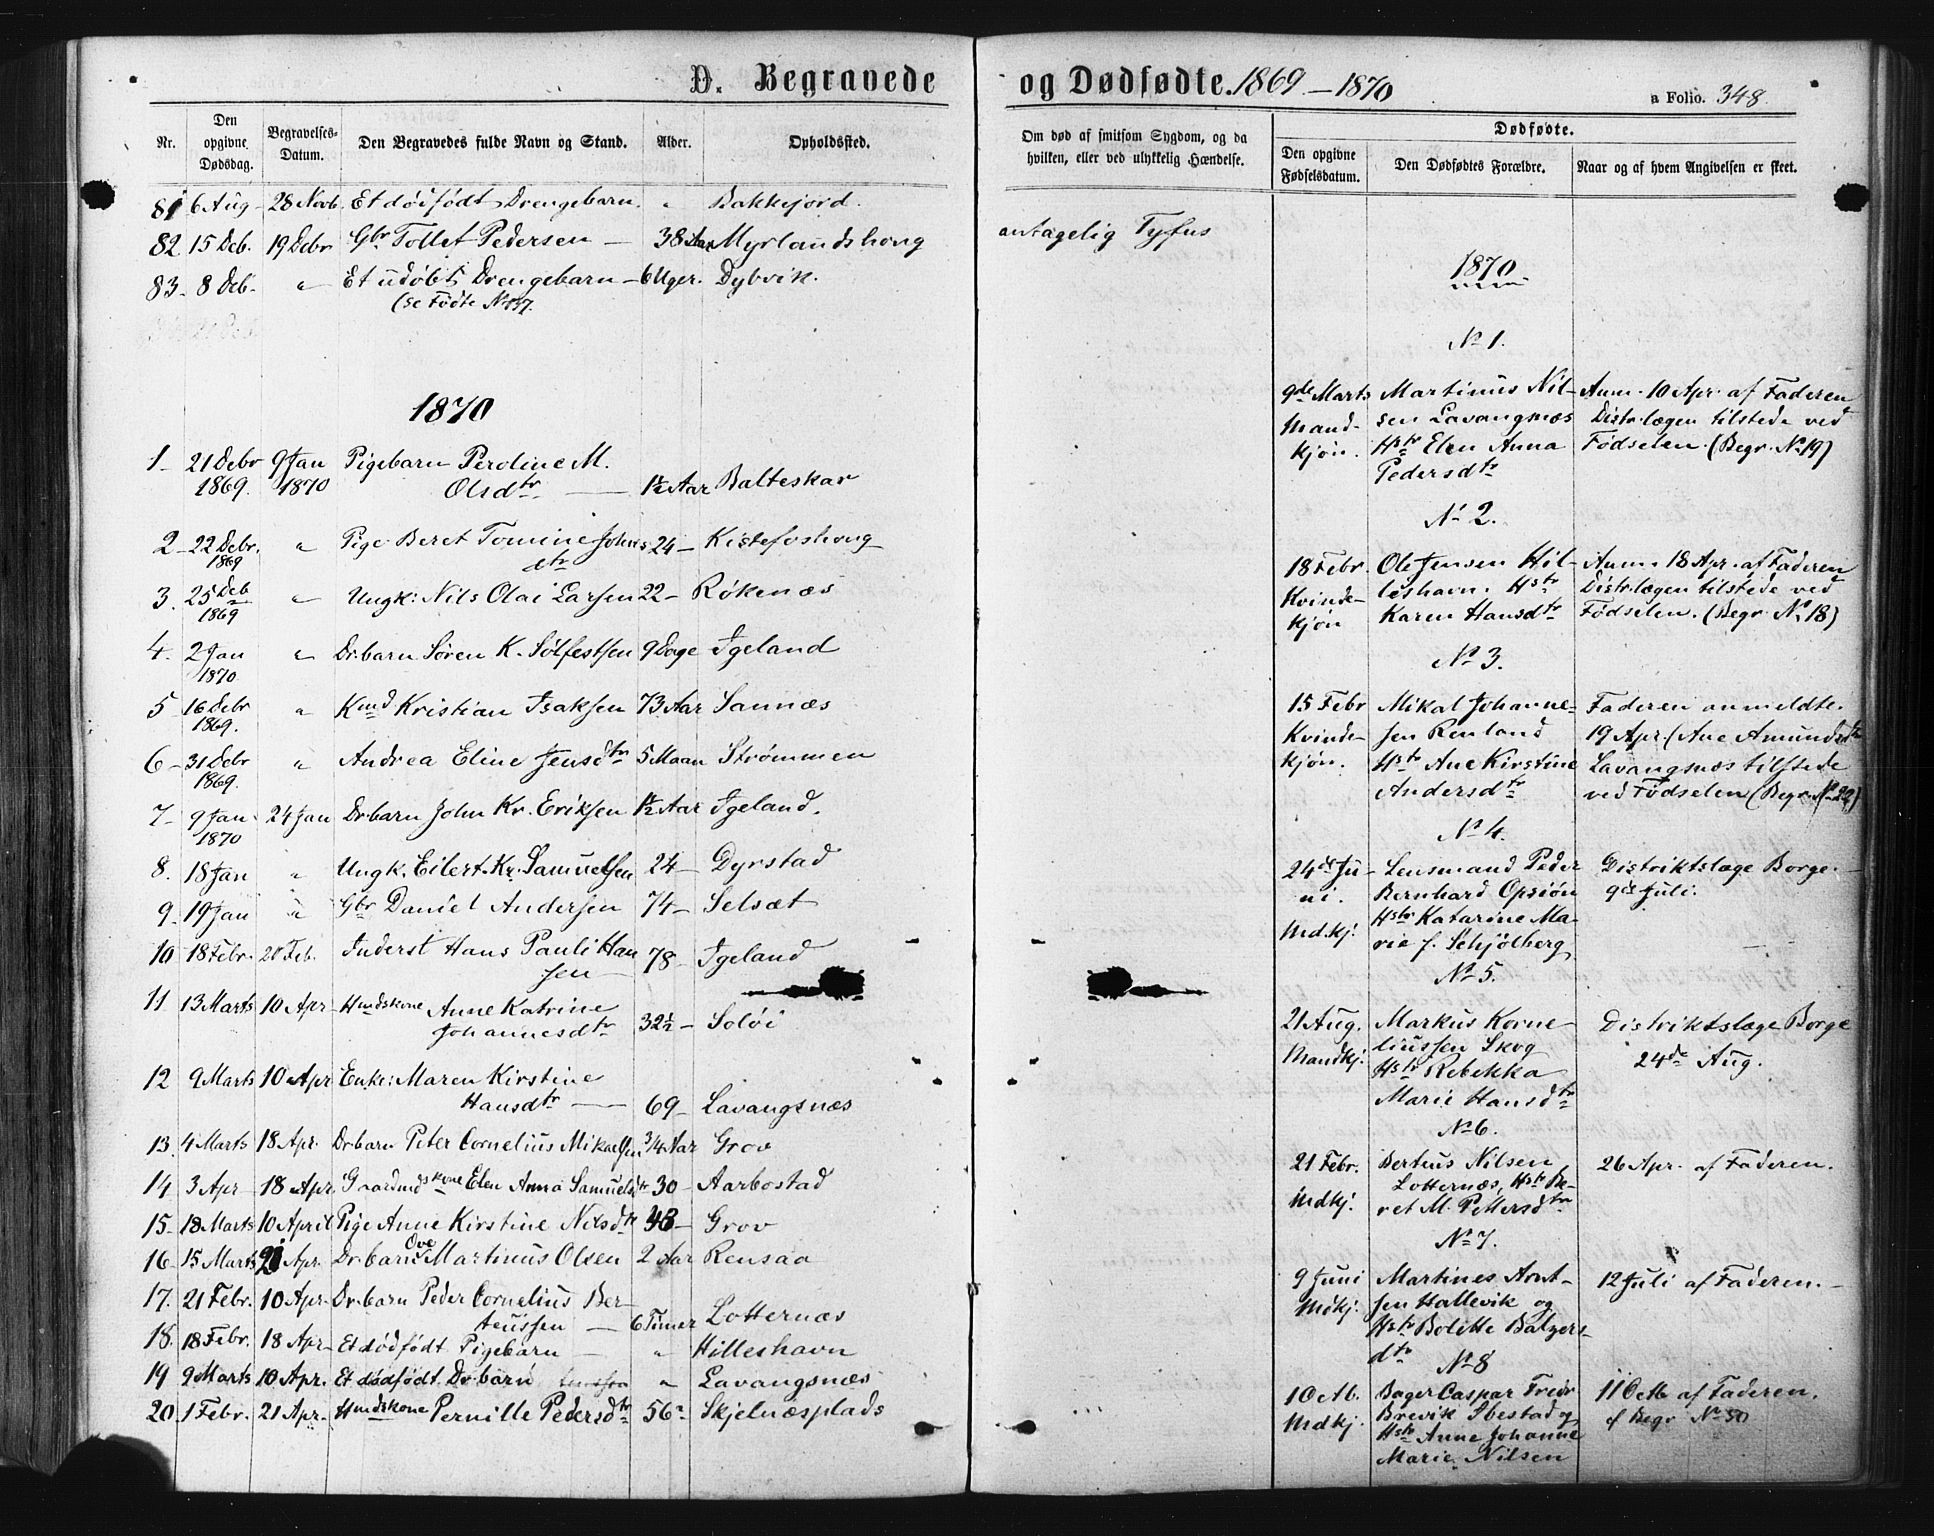 D. Begravede og Dødfødte. 1869 – 1870
a Folio. 348.
Nr.
Den opgivne Dødsdag.
Begravelses-Datum.
Den Begravedes fulde Navn og Stand.
Alder.
Opholdssted.
81 6 Aug 28 Novb. Et dödfödt Drengebarn. " Bakkejord.
82 15 Deb. 19 Debr Gbr Tollef Pedersen — 38 Aar Myrlandshoug
83. 8 Deb. " Et udöbt Drengebarn — 6 Uger. Dybvik.
(se Födte No 137.
1870
1 21 Debr 9 Jan Pigebarn Peroline M.
1869. 1870 Olsdtr — 1½ Aar Balteskar
2 22 Debr. " Pige Beret Tomine Johns 24 — Kistefoshoug
1869 dtr
3. 25 Deb " Ungk: Nils Olai Larsen 22 — Rökenæs
1869
4. 2 Jan " Drbarn Sören K. Sölfestsen 9 Dage Igeland
1870
5 16 Debr " Kmd Kristian Isaksen 73 Aar Sannæs
1869.
6 — 31 Debr " Andrea Eline Jensdtr 5 Maan Strömmen
1869.
7 — 9 Jan 24 Jan Drbarn John Kr. Eriksen 1½ Aar Igeland.
1870
8. 18 Jan " Ungk. Eilert Kr. Samuelsen 24 — Dyrstad
9. 19 Jan " Gbr Daniel Andersen 74 — Selsæt
10 18 Febr. 20 Feb. Inderst Hans Pauli Han
sen 78 — Igeland
11 13 Marts 10 Apr Hmdskone Anne Katrine
Johannesdtr 32½ — Solöi
12 9 Marts 10 Apr Enke: Maren Kirstine
Hansdtr — 69 — Lavangsnæs
13. 4 Marts 18 Apr. Drbarn Peter Cornelius Mikaelsen 3/4 Aar Grov
14 3 Apr 18 Apr. Gaardmdskone Elen Anna Samuelsdtr 30 — Aarbostad
15. 18 Marts 10 April Pige Anne Kirstine Nilsdtr 43 — Grov
16 15 Marts 21 Apr. Drbarn Ove Martinus Olsen 2 Aar Rensaa
17. 21 Febr. 10 Apr. Drbarn Peder Cornelius Ber-
teussen — 6 Timer Lotternæs
18. 18 Febr. 18 Apr Et dödfödt Pigebarn — " Hilleshavn
19 9 Marts 10 Apr. Et dödfödt Drbarn " Lavangsnæs
20. 1 Febr. 21 Apr. Hmdskone Pernille Pedersdtr 56 Skjelnæsplads
Om død af smitsom Sygdom, og da
hvilken, eller ved ulykkelig Hændelse.
antagelig Tyfus
Dødfødte.
Den opgivne Fødselsdatum.
Den Dødfødtes Forældre.
Naar og af hvem Angivelsen er skeet.
1870
No 1.
9de Marts Martinus Nil- Anm. 10 Apr. af Faderen
Mand- sen Lavangsnæs Distr.lægen tilstede ved
kjön. Hstr Elen Anna Födselen. (Begr. No 19)
Pedersdtr
No 2.
18 Febr. Ole Jensen Hil- Anm. 18 Apr. af Faderen
Kvinde- leshavn. Hstr Distr.lægen tilstede ved
kjön Karen Hansdtr Födselen. (Begr No 18)
No 3.
15 Febr Mikal Johanne- Faderen anmeldte
Kvinde- sen Renland 19 Apr. (Ane Amundsdtr
kjön. Hstr Ane Kirstine Lavangsnæs tilstede
Andersdtr ved Födselen (Begr. No 22)
No 4.
24de Ju- Lensmand Peder Distriktslæge Borge
ni. Bernhard Opsiön 9de Juli.
Mdkj. Hstr Katarine Ma-
rie f. Schjölberg
No 5.
21 Aug. Markus Korne- Distriktslæge Borge
Mandkj. liussen Skog 24de Aug.
Hstr Rebekka
Marie Hansdtr
No 6.
21 Febr. Berteus Nilsen 26 Apr. af Faderen.
Mdkj. Lotternæs, Hstr Be-
ret M. Pettersdtr
No 7.
9 Juni Martines Arnt- 12 Juli af Faderen.
Mdkj. sen Hallevik og
Hstr Bolette Balzers-
dtr
No 8
1 Octb. Bager Caspar Fredr 11 Octb af Faderen.
Mdkj. Brevik Ibestad og cf Begr No 50
Hstr Anne Johanne
Marie Nilsen